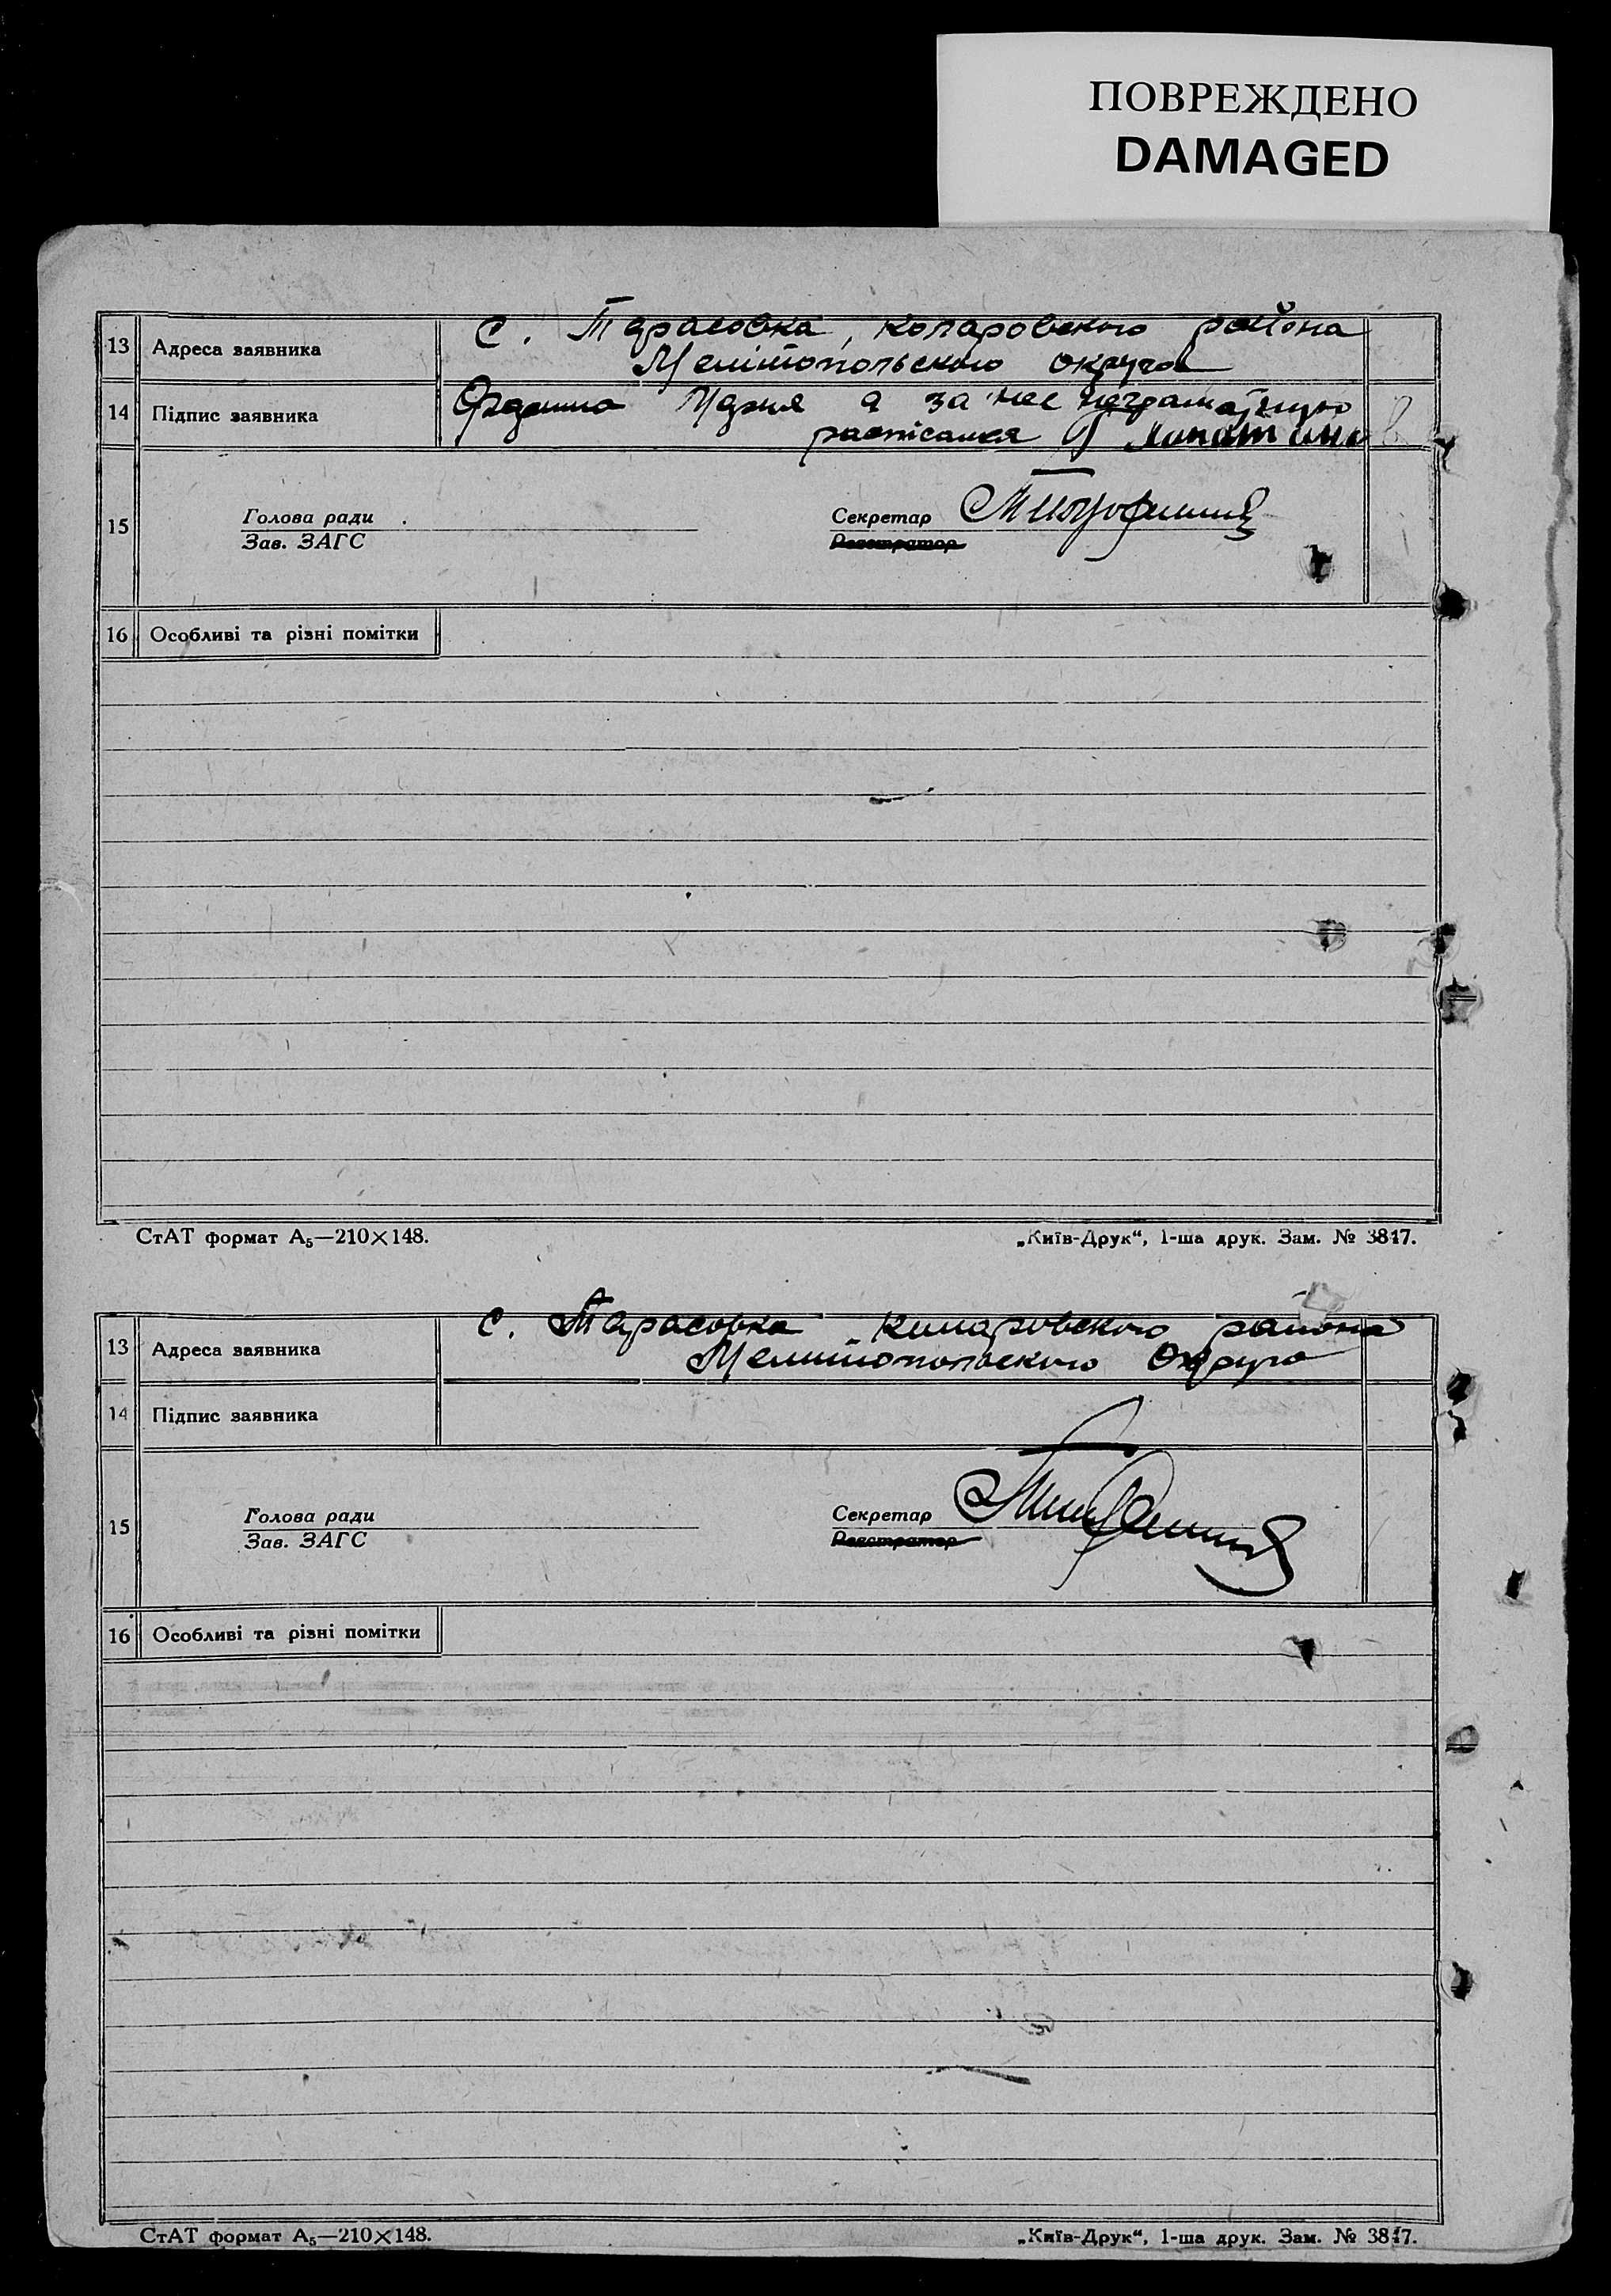 ПОВРЕЖДЕНО
DAMAGED
13 Адреса заявника с. Тарасовка, коларовского района
Мелітопольского округа
14 Підпис заявника Мария а за нее неграмотную
расписался
15 Голова ради Секретар
Зав. ЗАГС Реєстратор
16 Особливі та різні помітки
СтАТ формат А₅—210×148. „Київ-Друк“, 1-ша друк. Зам. № 3847.
13 Адреса заявника с. Тарасовка коларовского района
Мелитопольского Округа
14 Підпис заявника
15 Голова ради Секретар
Зав. ЗАГС Реєстратор
16 Особливі та різні помітки
СтАТ формат А₅—210×148. „Київ-Друк“, 1-ша друк. Зам. № 3847.